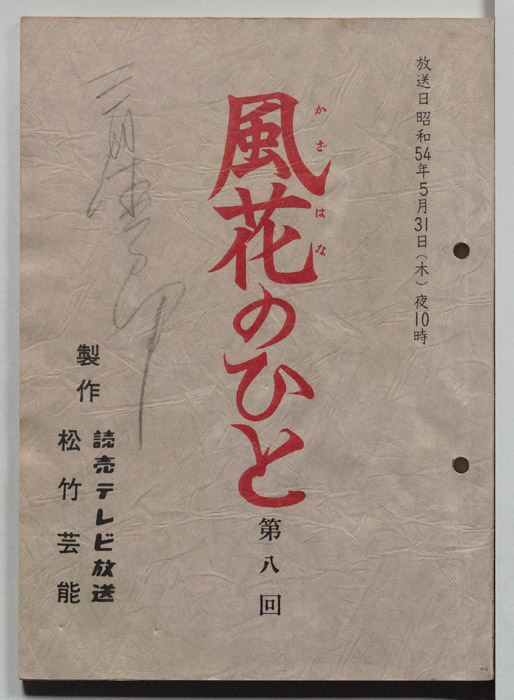 放送日 昭和54年5月31日(木)夜10時
風花のひと
かざはな
第八回
製作
読売テレビ放送
松竹芸能